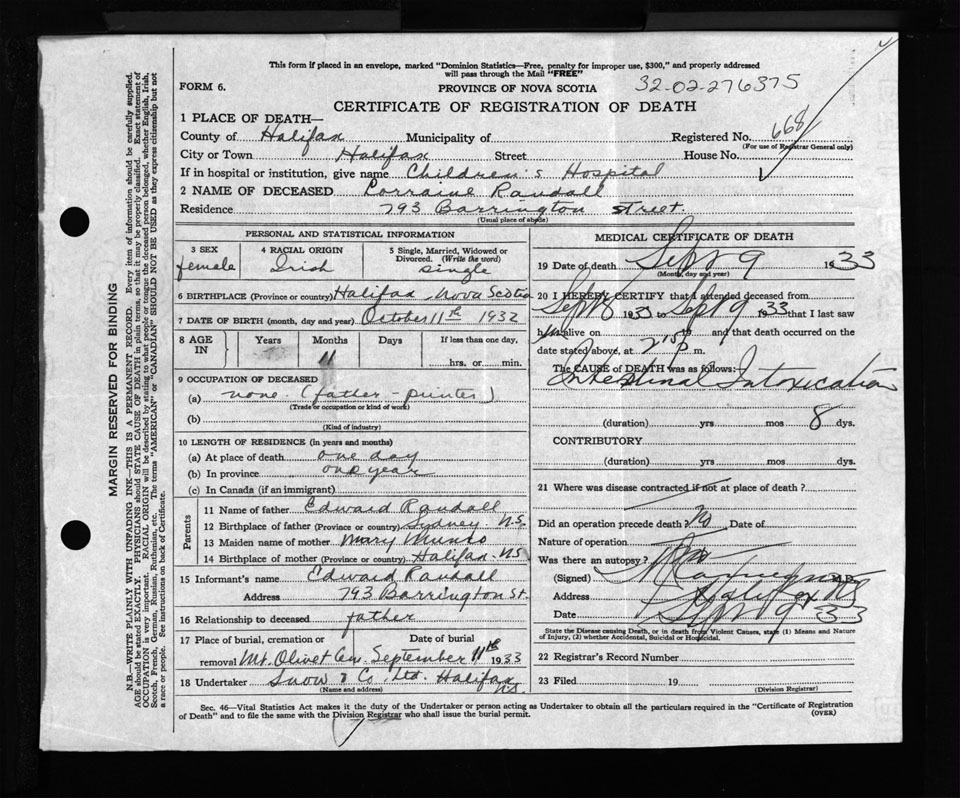 This form if placed in an envelope, marked "Dominion Statistics—Free, penalty for improper use, $300," and properly addressed
will pass through the Mail "FREE"
FORM 6.
PROVINCE OF NOVA SCOTIA
32-02-276375
CERTIFICATE OF REGISTRATION OF DEATH
MARGIN RESERVED FOR BINDING
N.B.—WRITE PLAINLY WITH UNFADING INK—THIS IS A PERMANENT RECORD. Every item of information should be carefully supplied.
AGE should be stated EXACTLY. PHYSICIANS should STATE CAUSE OF DEATH in plain terms, so that it may be properly classified. Exact statement of
OCCUPATION is very important. RACIAL ORIGIN will be described by stating to what people or tongue the deceased person belonged, whether English, Irish,
Scotch, French, German, Russian, Ruthenian, etc. The terms "AMERICAN" or "CANADIAN" SHOULD NOT BE USED as they express citizenship but not
a race or people. See instructions on back of Certificate.
1 PLACE OF DEATH—
County of Halifax Municipality of Registered No. 668
(For use of Registrar General only)
City or Town Halifax Street House No.
If in hospital or institution, give name Children's Hospital
2 NAME OF DECEASED Lorraine Randall
Residence 793 Barrington Street.
(Usual place of abode)
PERSONAL AND STATISTICAL INFORMATION
3 SEX 4 RACIAL ORIGIN 5 Single, Married, Widowed or
Divorced. (Write the word)
female Irish single
6 BIRTHPLACE (Province or country) Halifax, Nova Scotia
7 DATE OF BIRTH (month, day and year) October 11th 1932
8 AGE IN Years Months Days If less than one day,
11 hrs. or min.
9 OCCUPATION OF DECEASED
(a) none (father - printer)
(Trade or occupation or kind of work)
(b)
(Kind of industry)
10 LENGTH OF RESIDENCE (in years and months)
(a) At place of death one day
(b) In province one year
(c) In Canada (if an immigrant)
Parents
11 Name of father Edward Randall
12 Birthplace of father (Province or country) Sydney N.S.
13 Maiden name of mother Mary Munro
14 Birthplace of mother (Province or country) Halifax NS
15 Informant's name Edward Randall
Address 793 Barrington St.
16 Relationship to deceased father
17 Place of burial, cremation or Date of burial
removal Mt. Olivet Cem. September 11th 1933
18 Undertaker Snow & Co. Ltd. Halifax
NS
(Name and address)
MEDICAL CERTIFICATE OF DEATH
19 Date of death Sept 9 1933
(Month, day and year)
20 I HEREBY CERTIFY that I attended deceased from
Sept 8 1933 to Sept 9 1933 that I last saw
h alive on and that death occurred on
date stated above, at p m.
The CAUSE of DEATH was as follows:—
Intestinal Intoxication
(duration) yrs mos 8 dys.
CONTRIBUTORY
(duration) yrs. mos. dys.
21 Where was disease contracted if not at place of death?
Did an operation precede death? No Date of
Nature of operation
Was there an autopsy? No
(Signed) M.D.
Address Halifax NS
Date Sept 9 33
State the Disease causing Death, or in death from Violent Causes, state (1) Means and Nature
of Injury, (2) whether Accidental, Suicidal or Homicidal.
22 Registrar's Record Number
23 Filed 19
(Division Registrar)
Sec. 46—Vital Statistics Act makes it the duty of the Undertaker or person acting as Undertaker to obtain all the particulars required in the "Certificate of Registration
of Death" and to file the same with the Division Registrar who shall issue the burial permit.
(OVER)